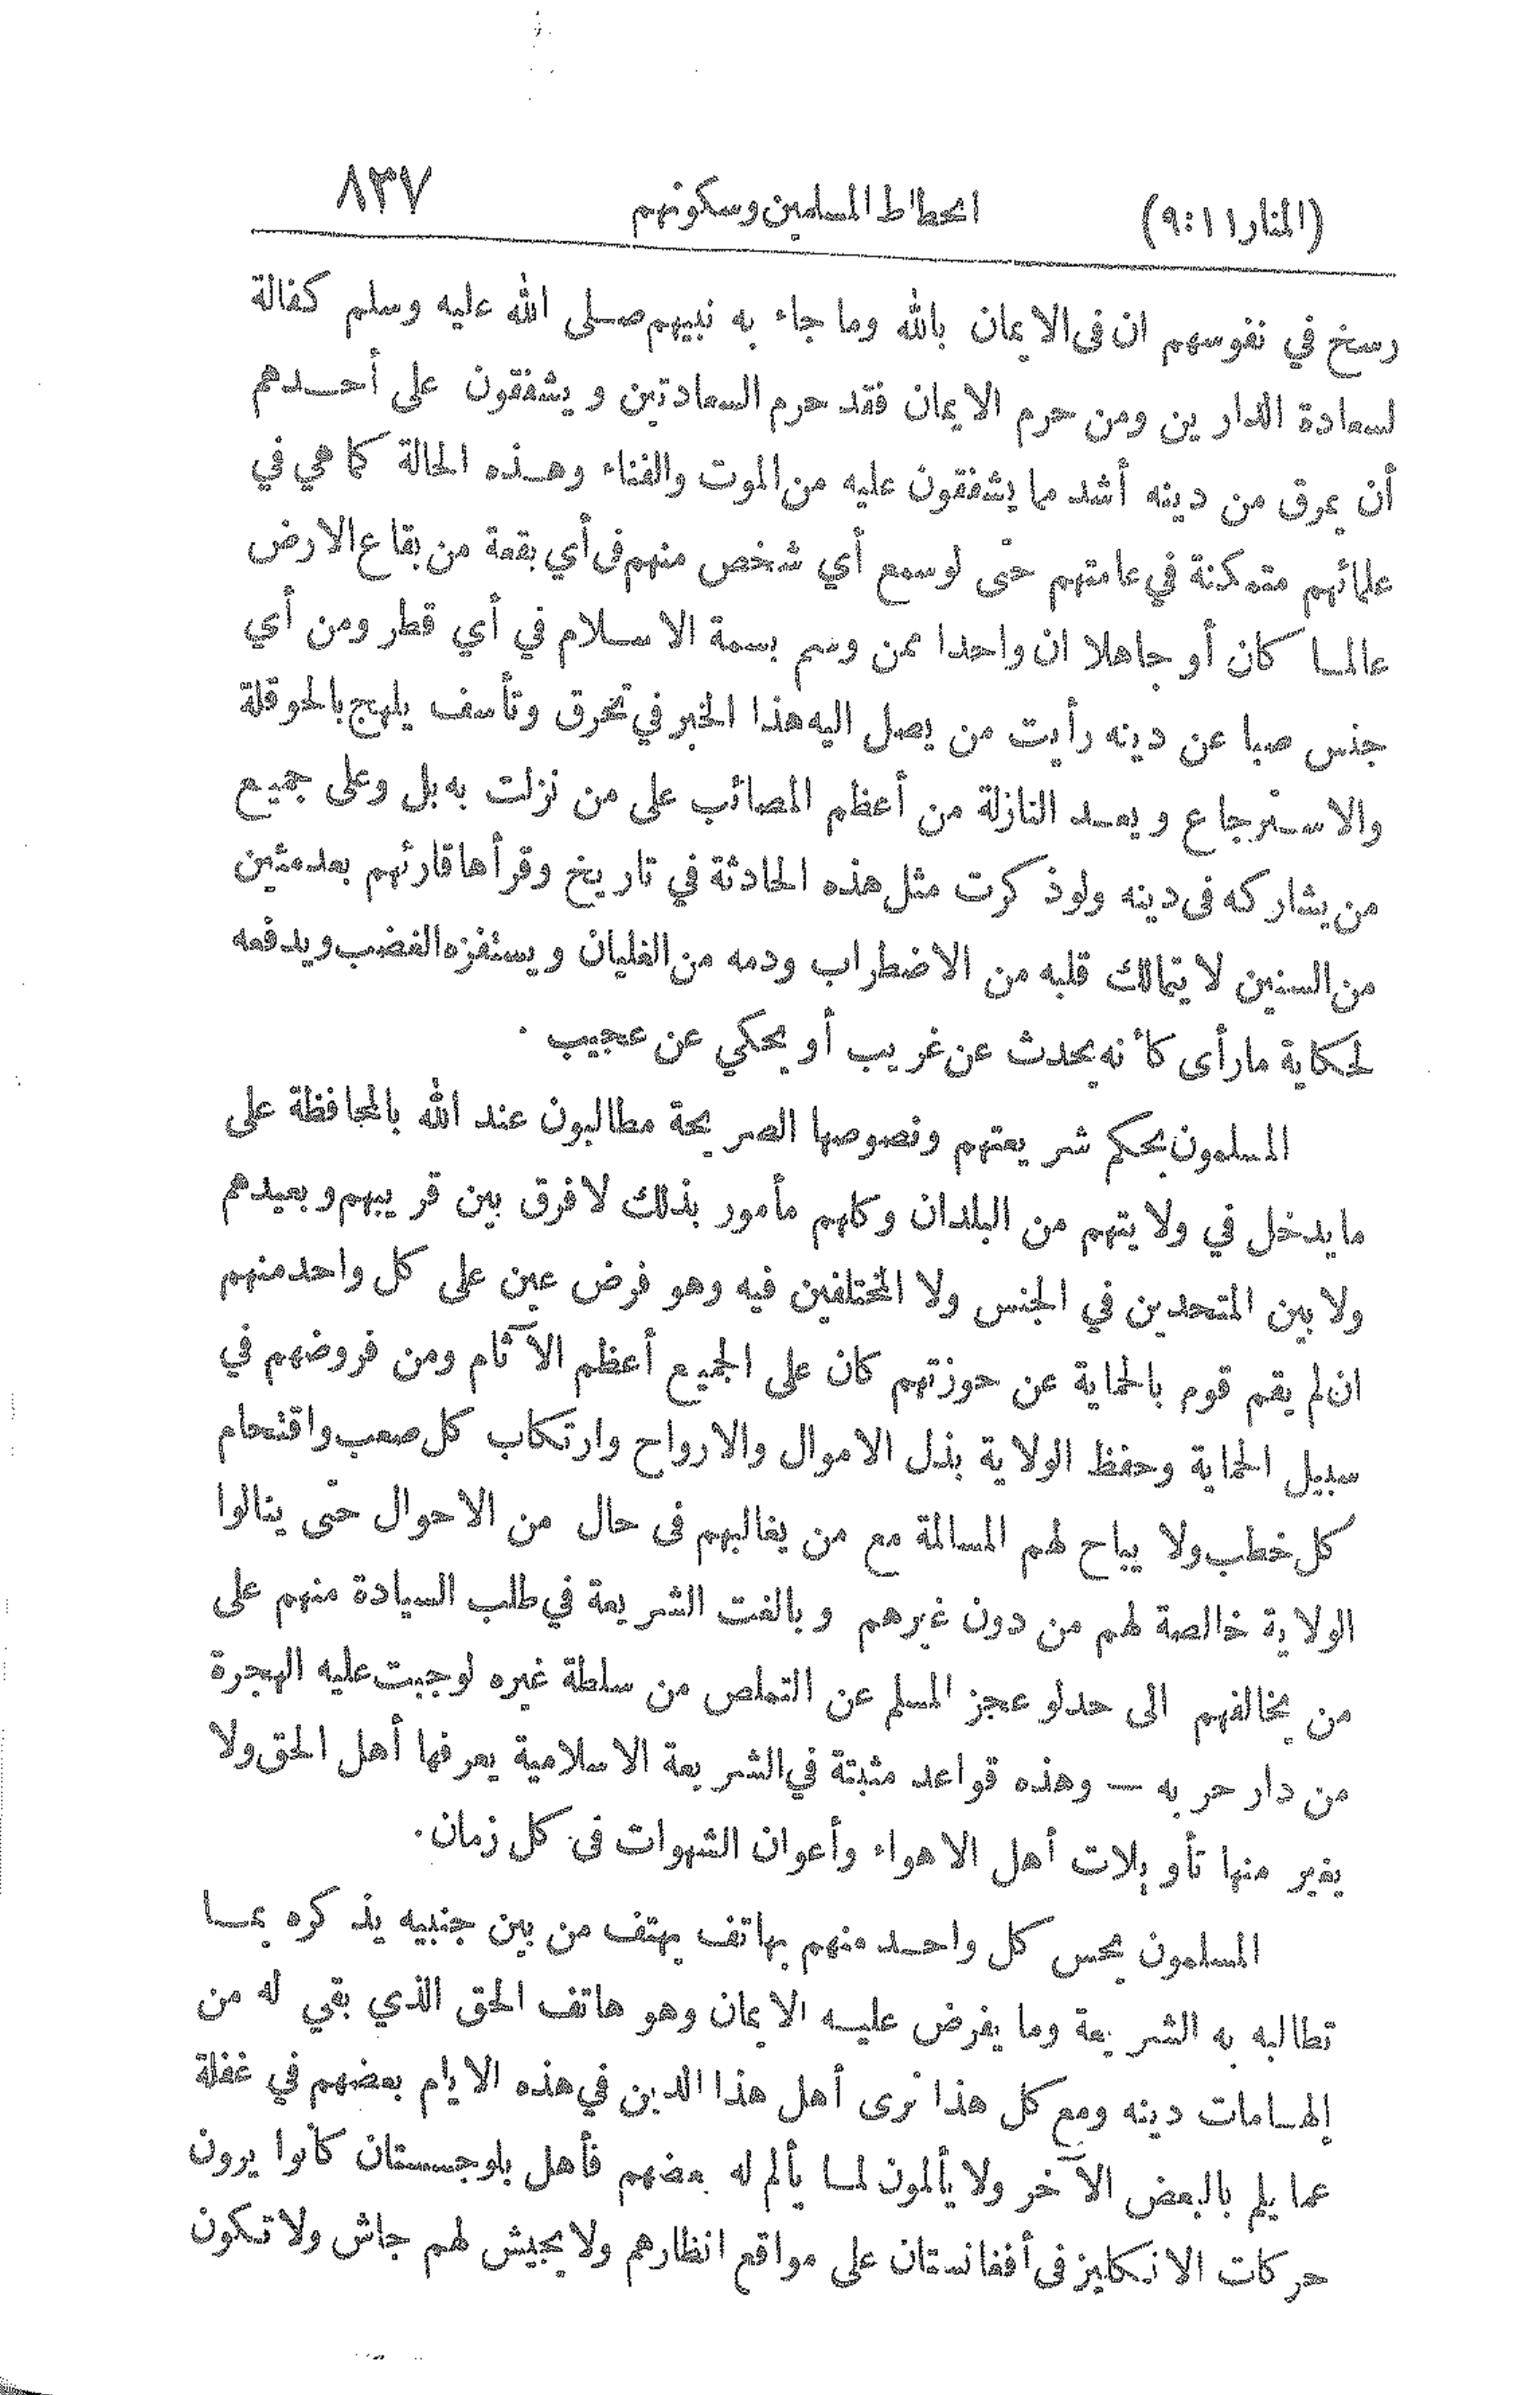 (المنار ١١: ٩) انحطاط المسلمين وسكونهم ٨٣٧
رسخ في نفوسهم ان فى الايمان بالله وما جاء به نبيهم صلى الله عليه وسلم كفالة
لسعادة الدارين ومن حرم الايمان فقد حرم السعادتين ويشفقون على أحدهم
أن يمرق من دينه أشد ما يشفقون عليه من الموت والفناء وهذه الحالة كما هي في
علمائهم متمكنة في عامتهم حتى لو سمع أي شخص منهم فى أي بقعة من بقاع الارض
عالما كان أو جاهلا ان واحدا ممن وسم بسمة الاسلام في أي قطر ومن أي
جنس صبا عن دينه رأيت من يصل اليه هذا الخبر في تحرق وتأسف يلهج بالحوقلة
والاسترجاع ويعد النازلة من أعظم المصائب على من نزلت به بل وعلى جميع
من يشاركه فى دينه ولو ذكرت مثل هذه الحادثة في تاريخ وقرأها قارئهم بعد مئين
من السنين لا يتمالك قلبه من الاضطراب ودمه من الغليان ويستفزه الغضب ويدفعه
لحكاية ما رأى كأنه يحدث عن غريب أو يحكي عن عجيب .
المسلمون بحكم شريعتهم ونصوصها الصريحة مطالبون عند الله بالمحافظة على
ما يدخل في ولايتهم من البلدان وكلهم مأمور بذلك لا فرق بين قريبهم وبعيدهم
ولا بين المتحدين في الجنس ولا المختلفين فيه وهو فرض عين على كل واحد منهم
ان لم يقم قوم بالحماية عن حوزتهم كان على الجميع أعظم الآثام ومن فروضهم في
سبيل الحماية وحفظ الولاية بذل الاموال والارواح وارتكاب كل صعب واقتحام
كل خطب ولا يباح لهم المسالمة مع من يغالبهم فى حال من الاحوال حتى ينالوا
الولاية خالصة لهم من دون غيرهم وبالغت الشريعة في طلب السيادة منهم على
من يخالفهم الى حد لو عجز المسلم عن التملص من سلطة غيره لوجبت عليه الهجرة
من دار حربه — وهذه قواعد مثبتة في الشريعة الاسلامية يعرفها أهل الحق ولا
يغير منها تأويلات أهل الاهواء وأعوان الشهوات فى كل زمان .
المسلمون يحس كل واحد منهم بهاتف يهتف من بين جنبيه يذكره بما
تطالبه به الشريعة وما يفرض عليه الايمان وهو هاتف الحق الذي بقي له من
إلهامات دينه ومع كل هذا نرى أهل هذا الدين في هذه الايام بعضهم في غفلة
عما يلم بالبعض الآخر ولا يألمون لما يألم له بعضهم فأهل بلوجستان كانوا يرون
حركات الانكليز فى أفغانستان على مواقع انظارهم ولا يجيش لهم جاش ولا تكون